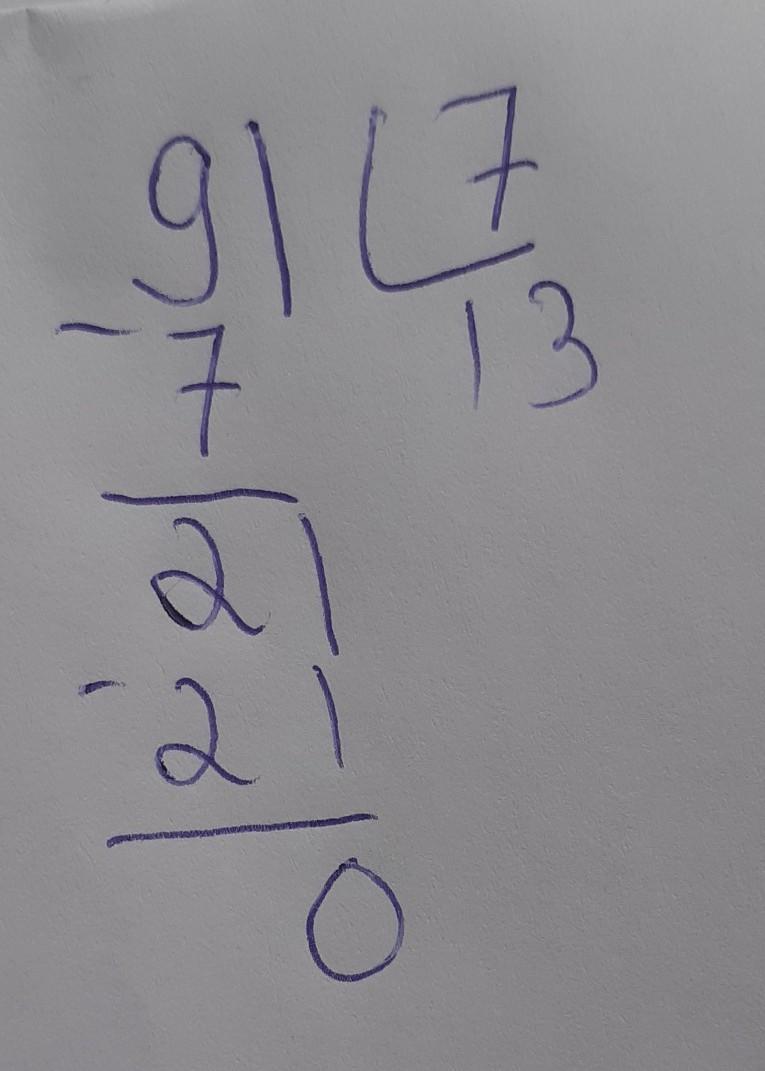 91 7
13
- 7
21
- 21
0